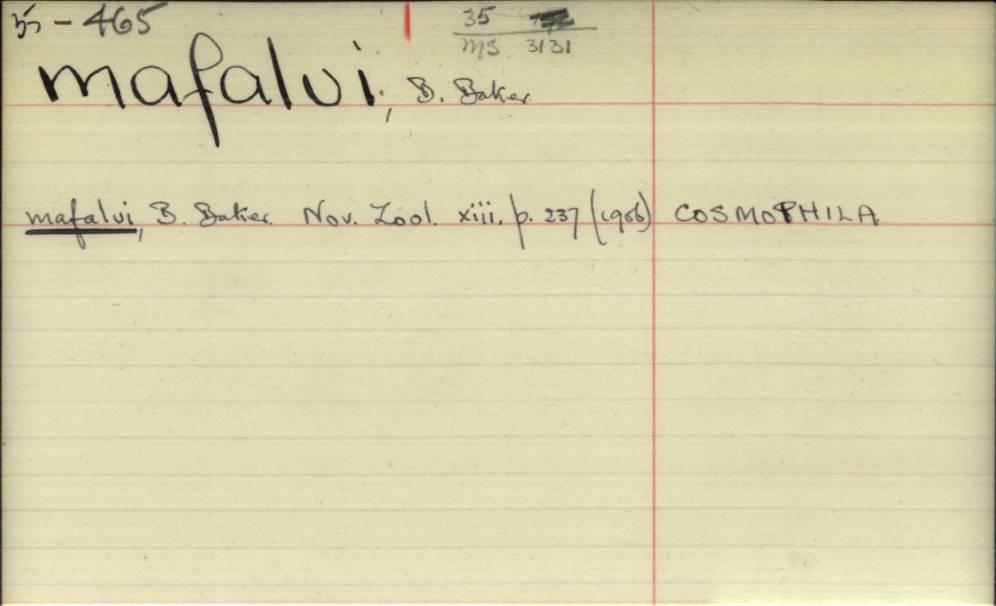 35 - 465
35
MS 3131
mafalvi, B. Baker.
mafalvi, B. Baker. Nov. Zool. xiii. p. 237 (1906) COSMOPHILA